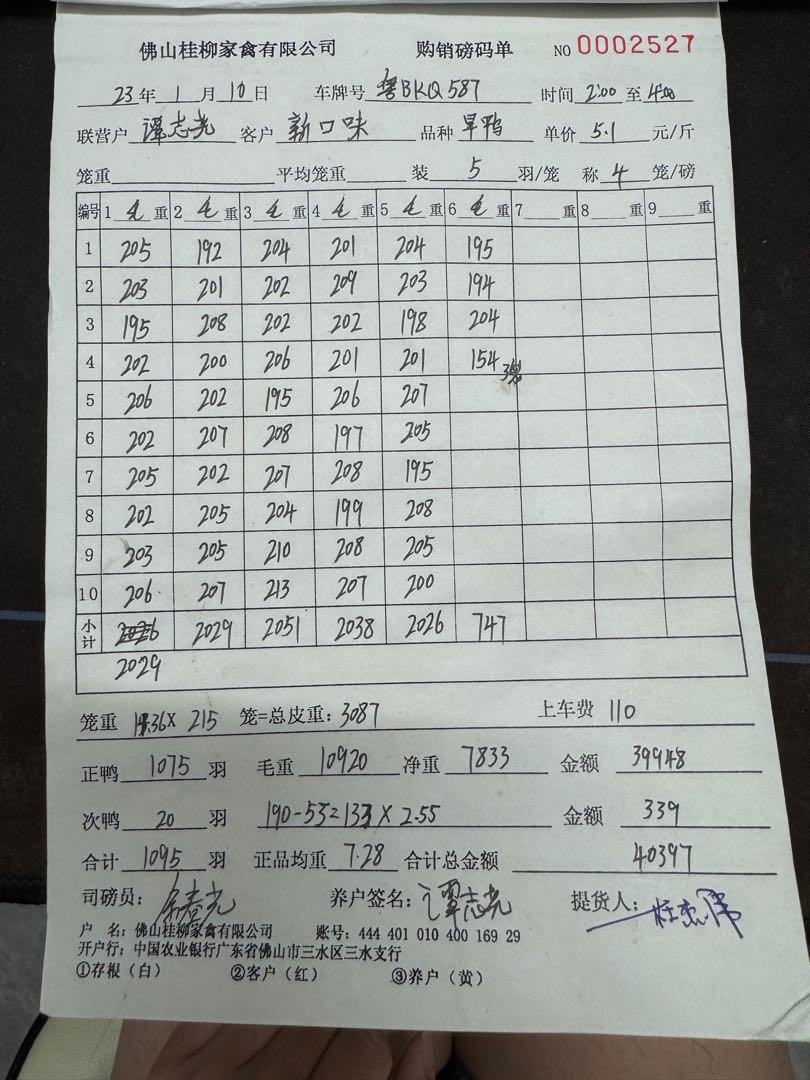 佛山桂柳家禽有限公司 购销磅码单 NO 0002527
23年 1月 10日 车牌号 粤BKQ587 时间 2:00 至 4:00
联营户 谭志尧 客户 新口味 品种 旱鸭 单价 5.1 元/斤
笼重 平均笼重 装 5 羽/笼 称 4 笼/磅
编号 1 毛 重 2 毛 重 3 毛 重 4 毛 重 5 毛 重 6 毛 重 7 重 8 重 9 重
1 205 192 204 201 204 195
2 203 201 202 209 203 194
3 195 208 202 202 198 204
4 202 200 206 201 201 154 3笼
5 206 202 195 206 207
6 202 207 208 197 205
7 205 202 207 208 195
8 202 205 204 199 208
9 203 205 210 208 205
10 206 207 213 207 200
小计 2029 2051 2038 2026 747
2029
笼重 14.36X 215 笼=总皮重: 3087 上车费 110
正鸭 1075 羽 毛重 10920 净重 7833 金额 39948
次鸭 20 羽 190-57=133 X 2.55 金额 339
合计 1095 羽 正品均重 7.28 合计总金额 40397
司磅员: 养户签名: 谭志尧 提货人:
户 名: 佛山桂柳家禽有限公司 账号: 444 401 010 400 169 29
开户行: 中国农业银行广东省佛山市三水区三水支行
①存根(白) ②客户(红) ③养户(黄)